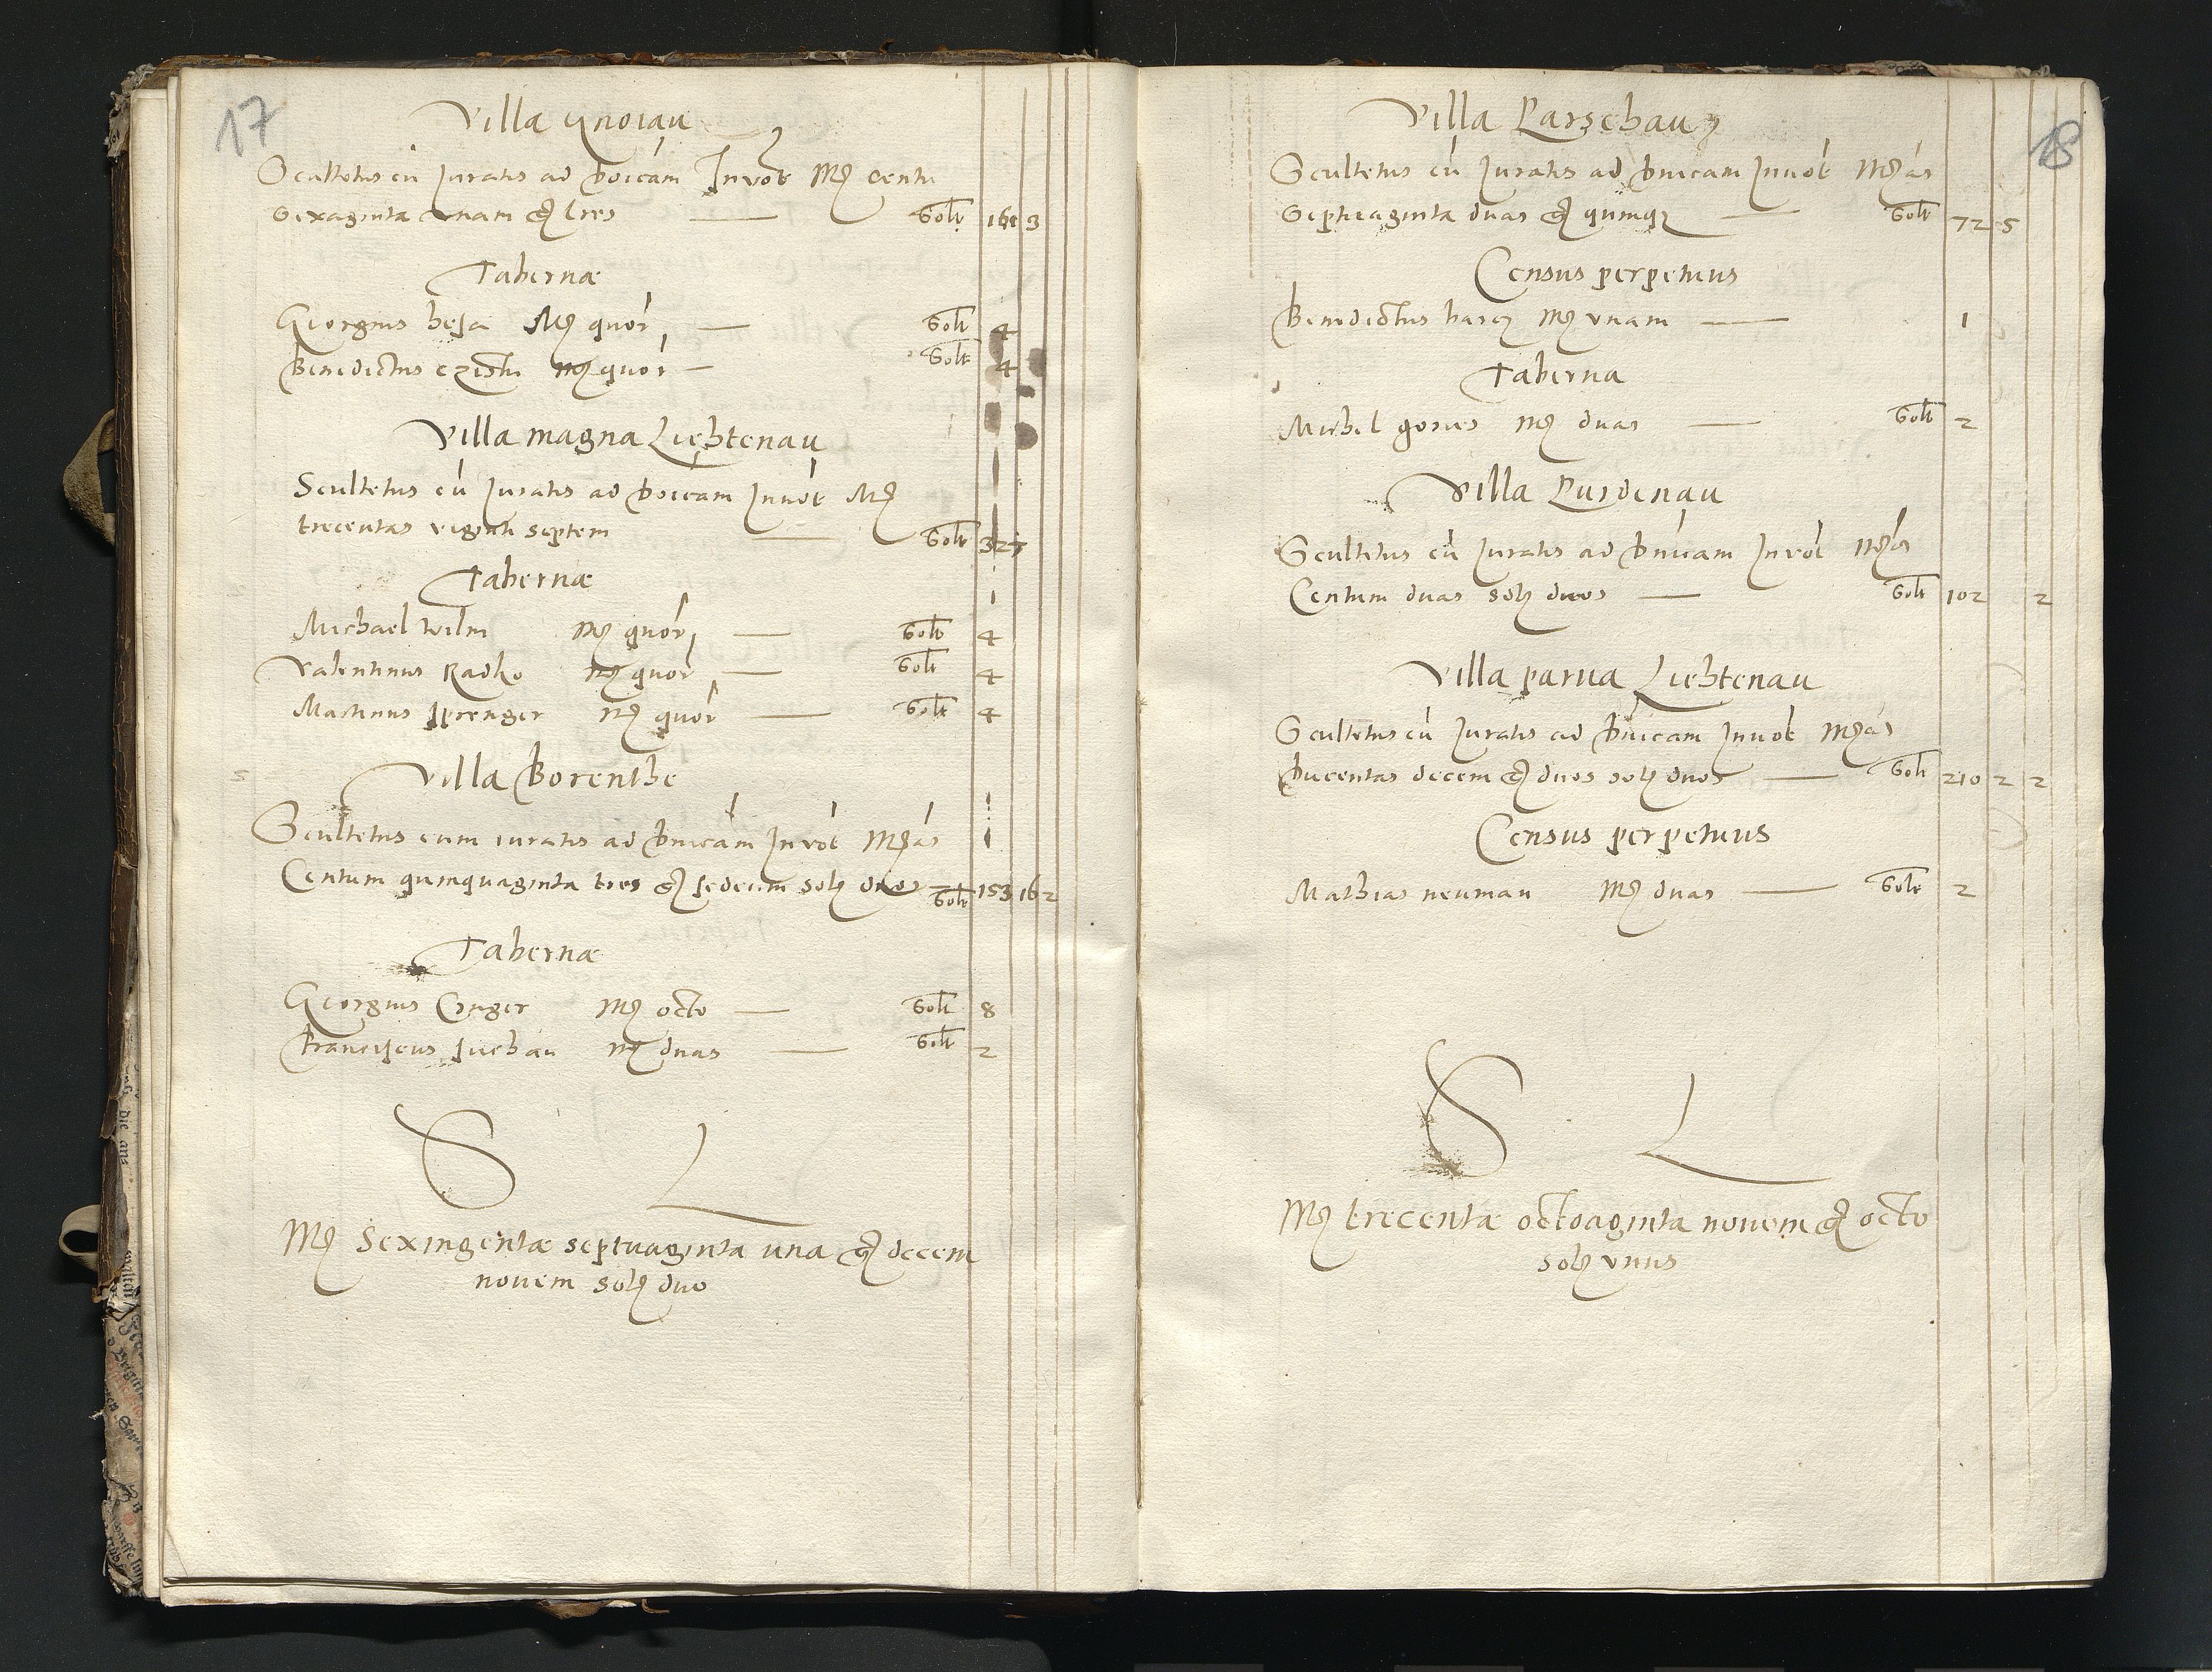 17
Villa ynoiau
Scultetus cū Juratis ad Invōt M centū
sexaginta unam g tres — Solt 161 3
Tabernæ
Georgius hesa M quor — Solt 4
Benedictus czisth M quor — Solt 4
Villa magna Liehtenau
Scultetus cū Juratis ad Invōt M
trecentas viginti septem — Solt 327
Tabernæ
Michael wilm M quor — Solt 4
Valentinus Radko M quor — Solt 4
Martinus sprenger M quor — Solt 4
Villa Borenthe
Scultetus cum iuratis ad Invōt Mas
Centum quinquaginta tres g sedecim sol duos — Solt 153 16 2
Tabernæ
Georgius Cruger M octo — Solt 8
Franciscus M duas — Solt 2
S L
M Sexingentæ septuaginta una g decem
novem sol duo
Villa Parschau
18
Scultetus cū Juratis ad Invōt Mas
septuaginta duas g quinq — Solt 72 5
Census perpetuus
Benedictus M unam — 1
Taberna
Michel gories M duas — Solt 2
Villa Purdenau
Scultetus cū Juratis ad Invōt Mas
Centum duas sol duos — Solt 102 2
Villa parua Liehtenau
Scultetus cū Juratis ad Invōt Mas
Ducentas decem g duos sol duos — Solt 210 2 2
Census perpetuus
Mathias neuman M duas — Solt 2
S L
M trecentæ octoaginta novem g octo
sol vnus